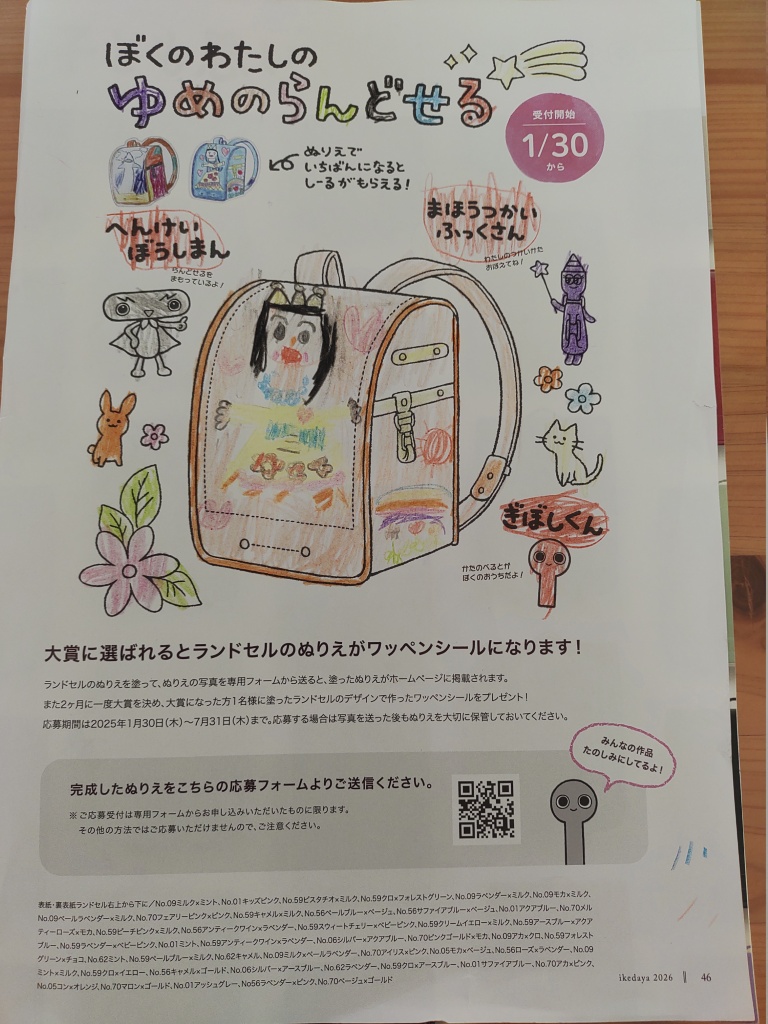 ぼくのわたしの
ゆめのらんどせる
受付開始
1/30
から
ぬりえで
いちばんになると
しーるがもらえる!
へんけい
ぼうしまん
らんどせるを
まもっているよ!
まほうつかい
ふっくさん
わたしのつかいかた
おぼえてね!
ぎぼしくん
かたのべるとが
ぼくのおうちだよ!
大賞に選ばれるとランドセルのぬりえがワッペンシールになります!
ランドセルのぬりえを塗って、ぬりえの写真を専用フォームから送ると、塗ったぬりえがホームページに掲載されます。
また2ヶ月に一度大賞を決め、大賞になった方1名様に塗ったランドセルのデザインで作ったワッペンシールをプレゼント!
応募期間は2025年1月30日(木)〜7月31日(木)まで。応募する場合は写真を送った後もぬりえを大切に保管しておいてください。
みんなの作品
たのしみにしてるよ!
完成したぬりえをこちらの応募フォームよりご送信ください。
※ご応募受付は専用フォームからお申し込みいただいたものに限ります。
その他の方法ではご応募いただけませんので、ご注意ください。
表紙・裏表紙ランドセル右上から下に/No.09ミルク×ミント、No.01キッズピンク、No.59ピスタチオ×ミルク、No.59クロ×フォレストグリーン、No.09ラベンダー×ミルク、No.09モカ×ミルク、
No.09ペールラベンダー×ミルク、No.70フェアリーピンク×ピンク、No.59キャメル×ミルク、No.56ペールブルー×ベージュ、No.56サファイアブルー×ベージュ、No.01アクアブルー、No.70メル
ティーローズ×モカ、No.59ピーチピンク×ミルク、No.56アンティークワイン×ラベンダー、No.59スウィートチェリー×ベビーピンク、No.59クリームイエロー×ミルク、No.59アースブルー×アクア
ブルー、No.59ラベンダー×ベビーピンク、No.01ミント、No.59アンティークワイン×ラベンダー、No.06シルバー×アクアブルー、No.70ピンクゴールド×モカ、No.09アカ×クロ、No.59フォレスト
グリーン×チョコ、No.62ミント、No.59ペールブルー×ミルク、No.62キャメル、No.09ミルク×ペールラベンダー、No.70アイリス×ピンク、No.05モカ×ベージュ、No.56ローズ×ラベンダー、No.09
ミント×ミルク、No.59クロ×イエロー、No.56キャメル×ゴールド、No.06シルバー×アースブルー、No.62ラベンダー、No.59クロ×アースブルー、No.01サファイアブルー、No.70アカ×ピンク、
No.05コン×オレンジ、No.70マロン×ゴールド、No.01アッシュグレー、No56ラベンダー×ピンク、No.70ベージュ×ゴールド
ikedaya 2026 46